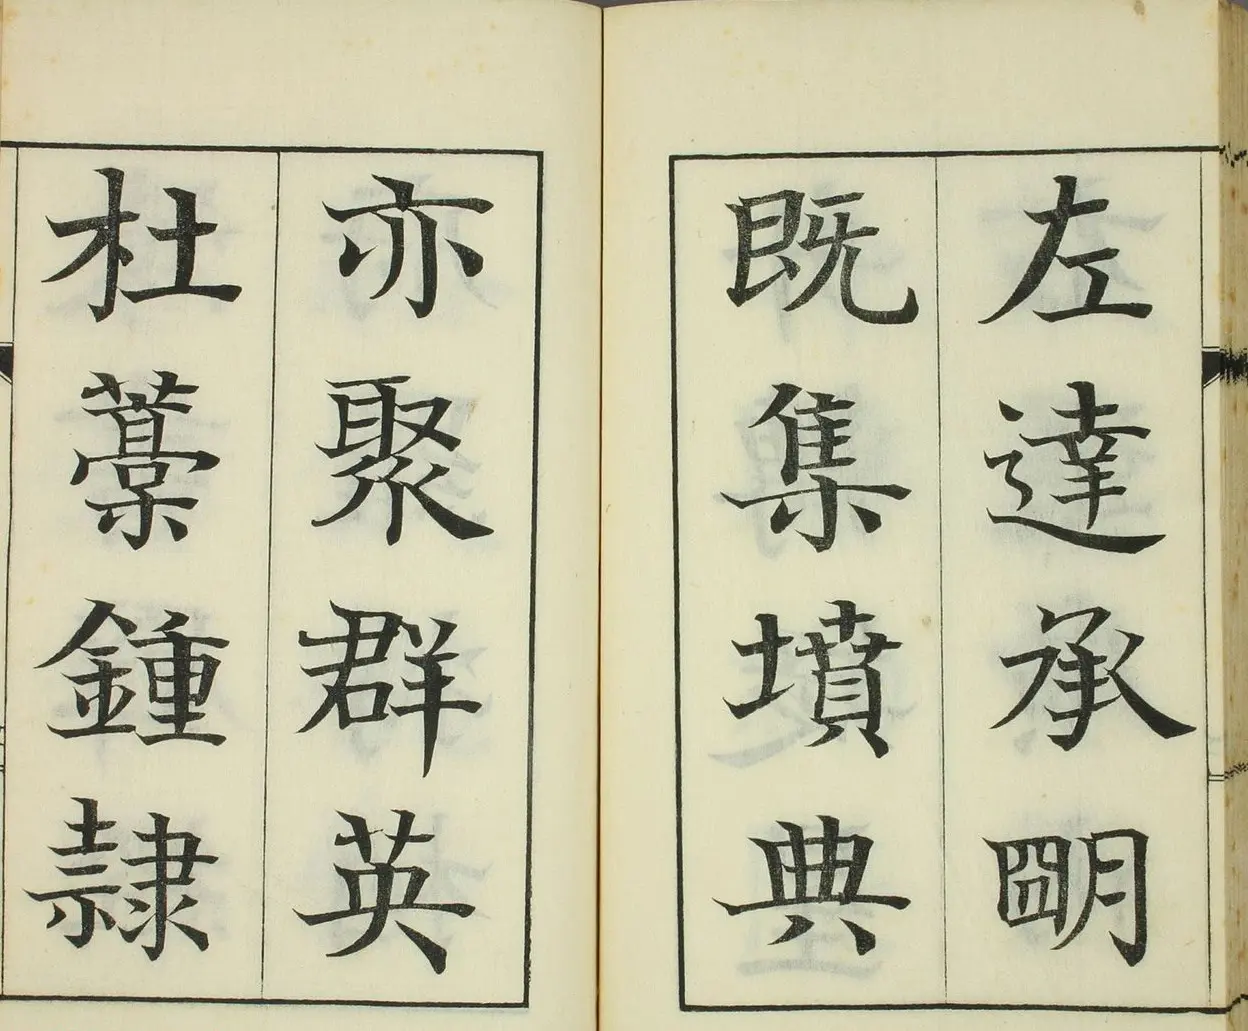 左達承朙
既集墳典
亦聚群英
杜藁鍾隷